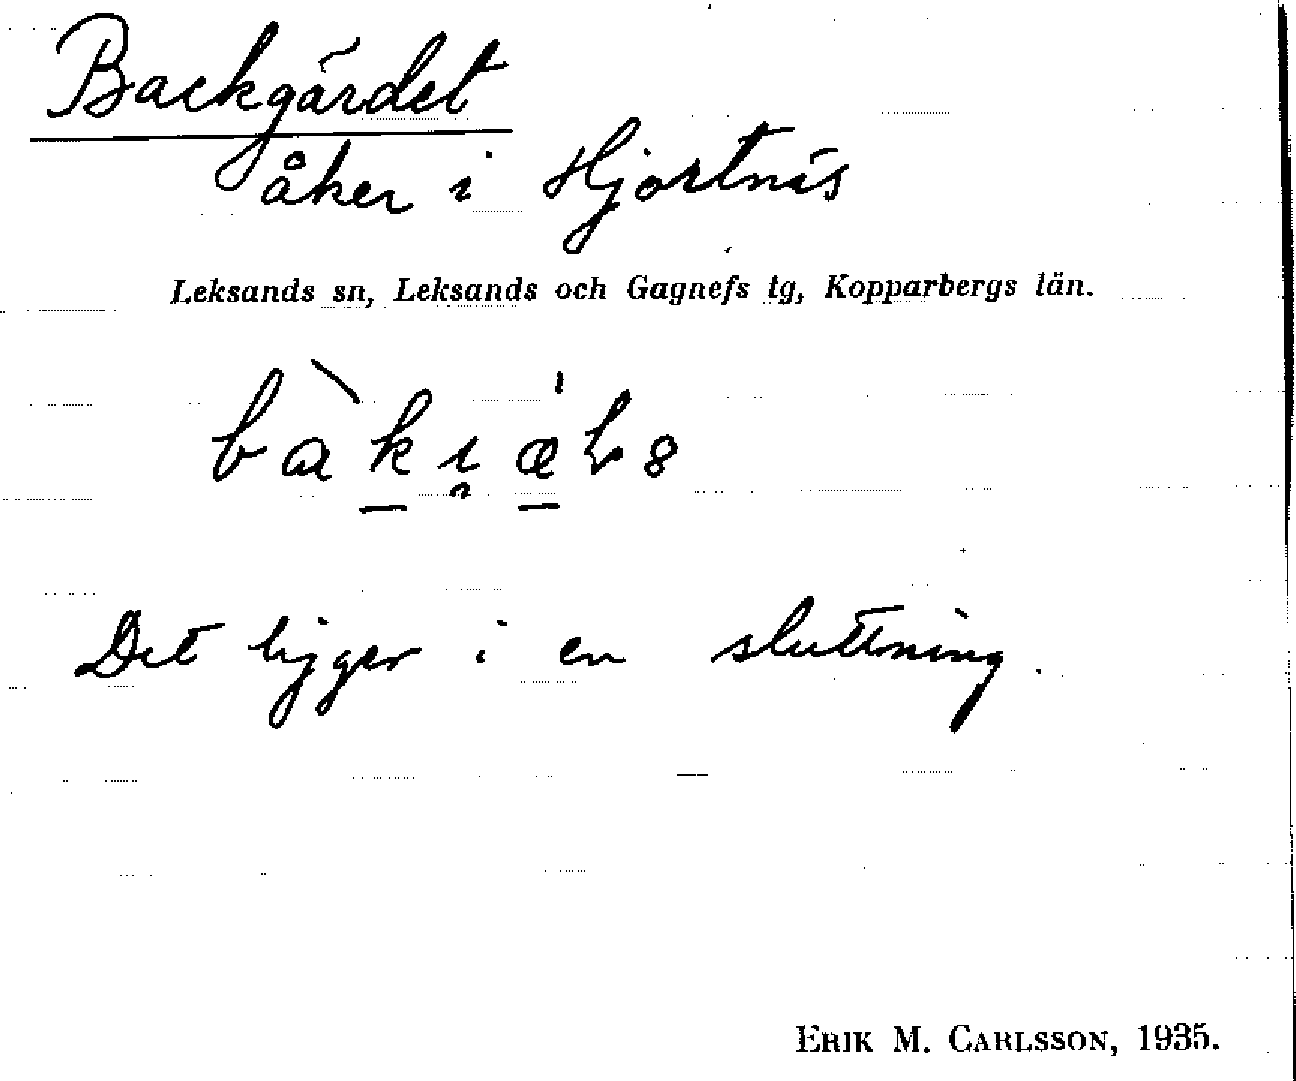 Backgärdet
åker i Hjortnäs
Leksands sn, Leksands och Gagnefs tg, Kopparbergs län.
Det ligger i en sluttning.
ERIK M. CARLSSON, 1935.